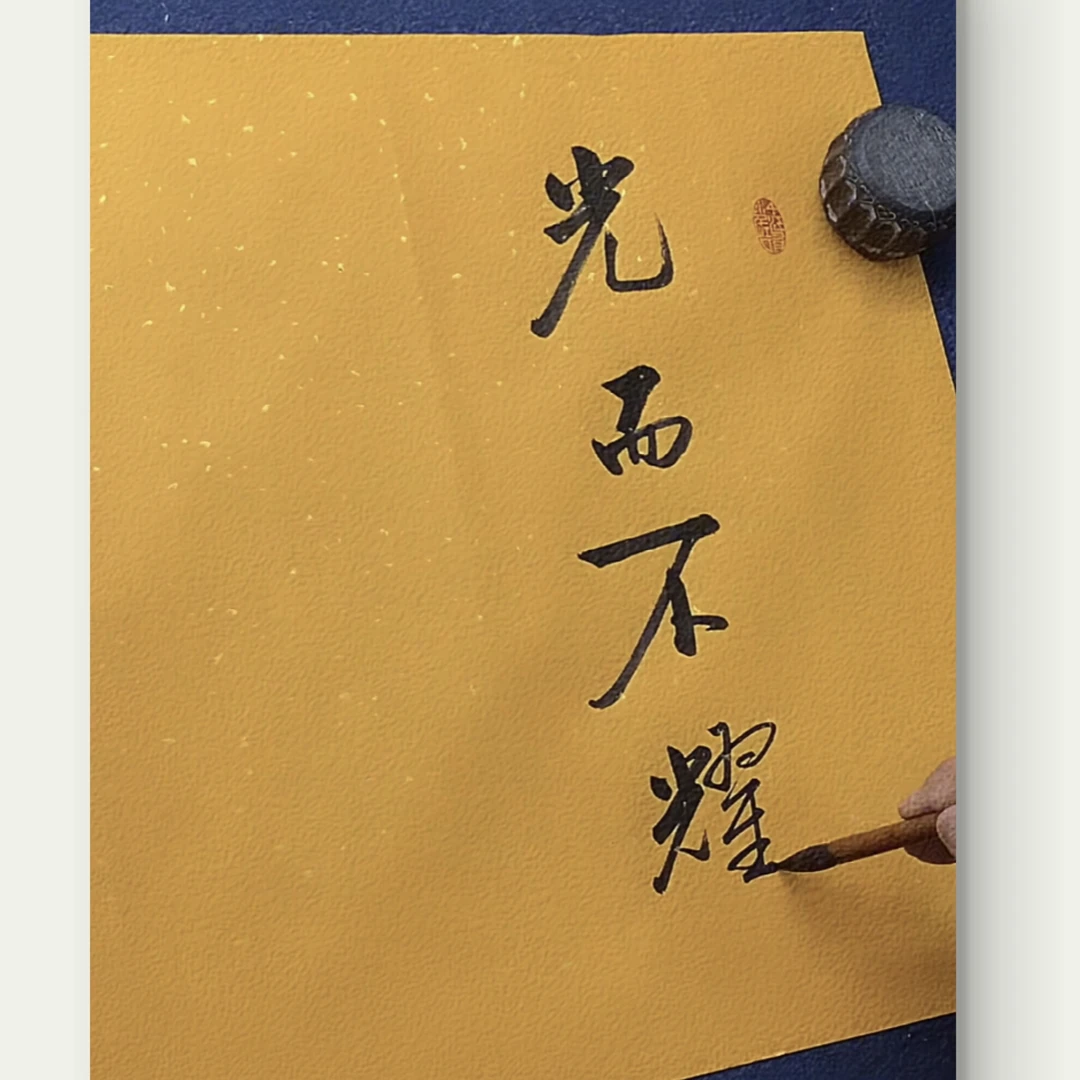 光而不耀